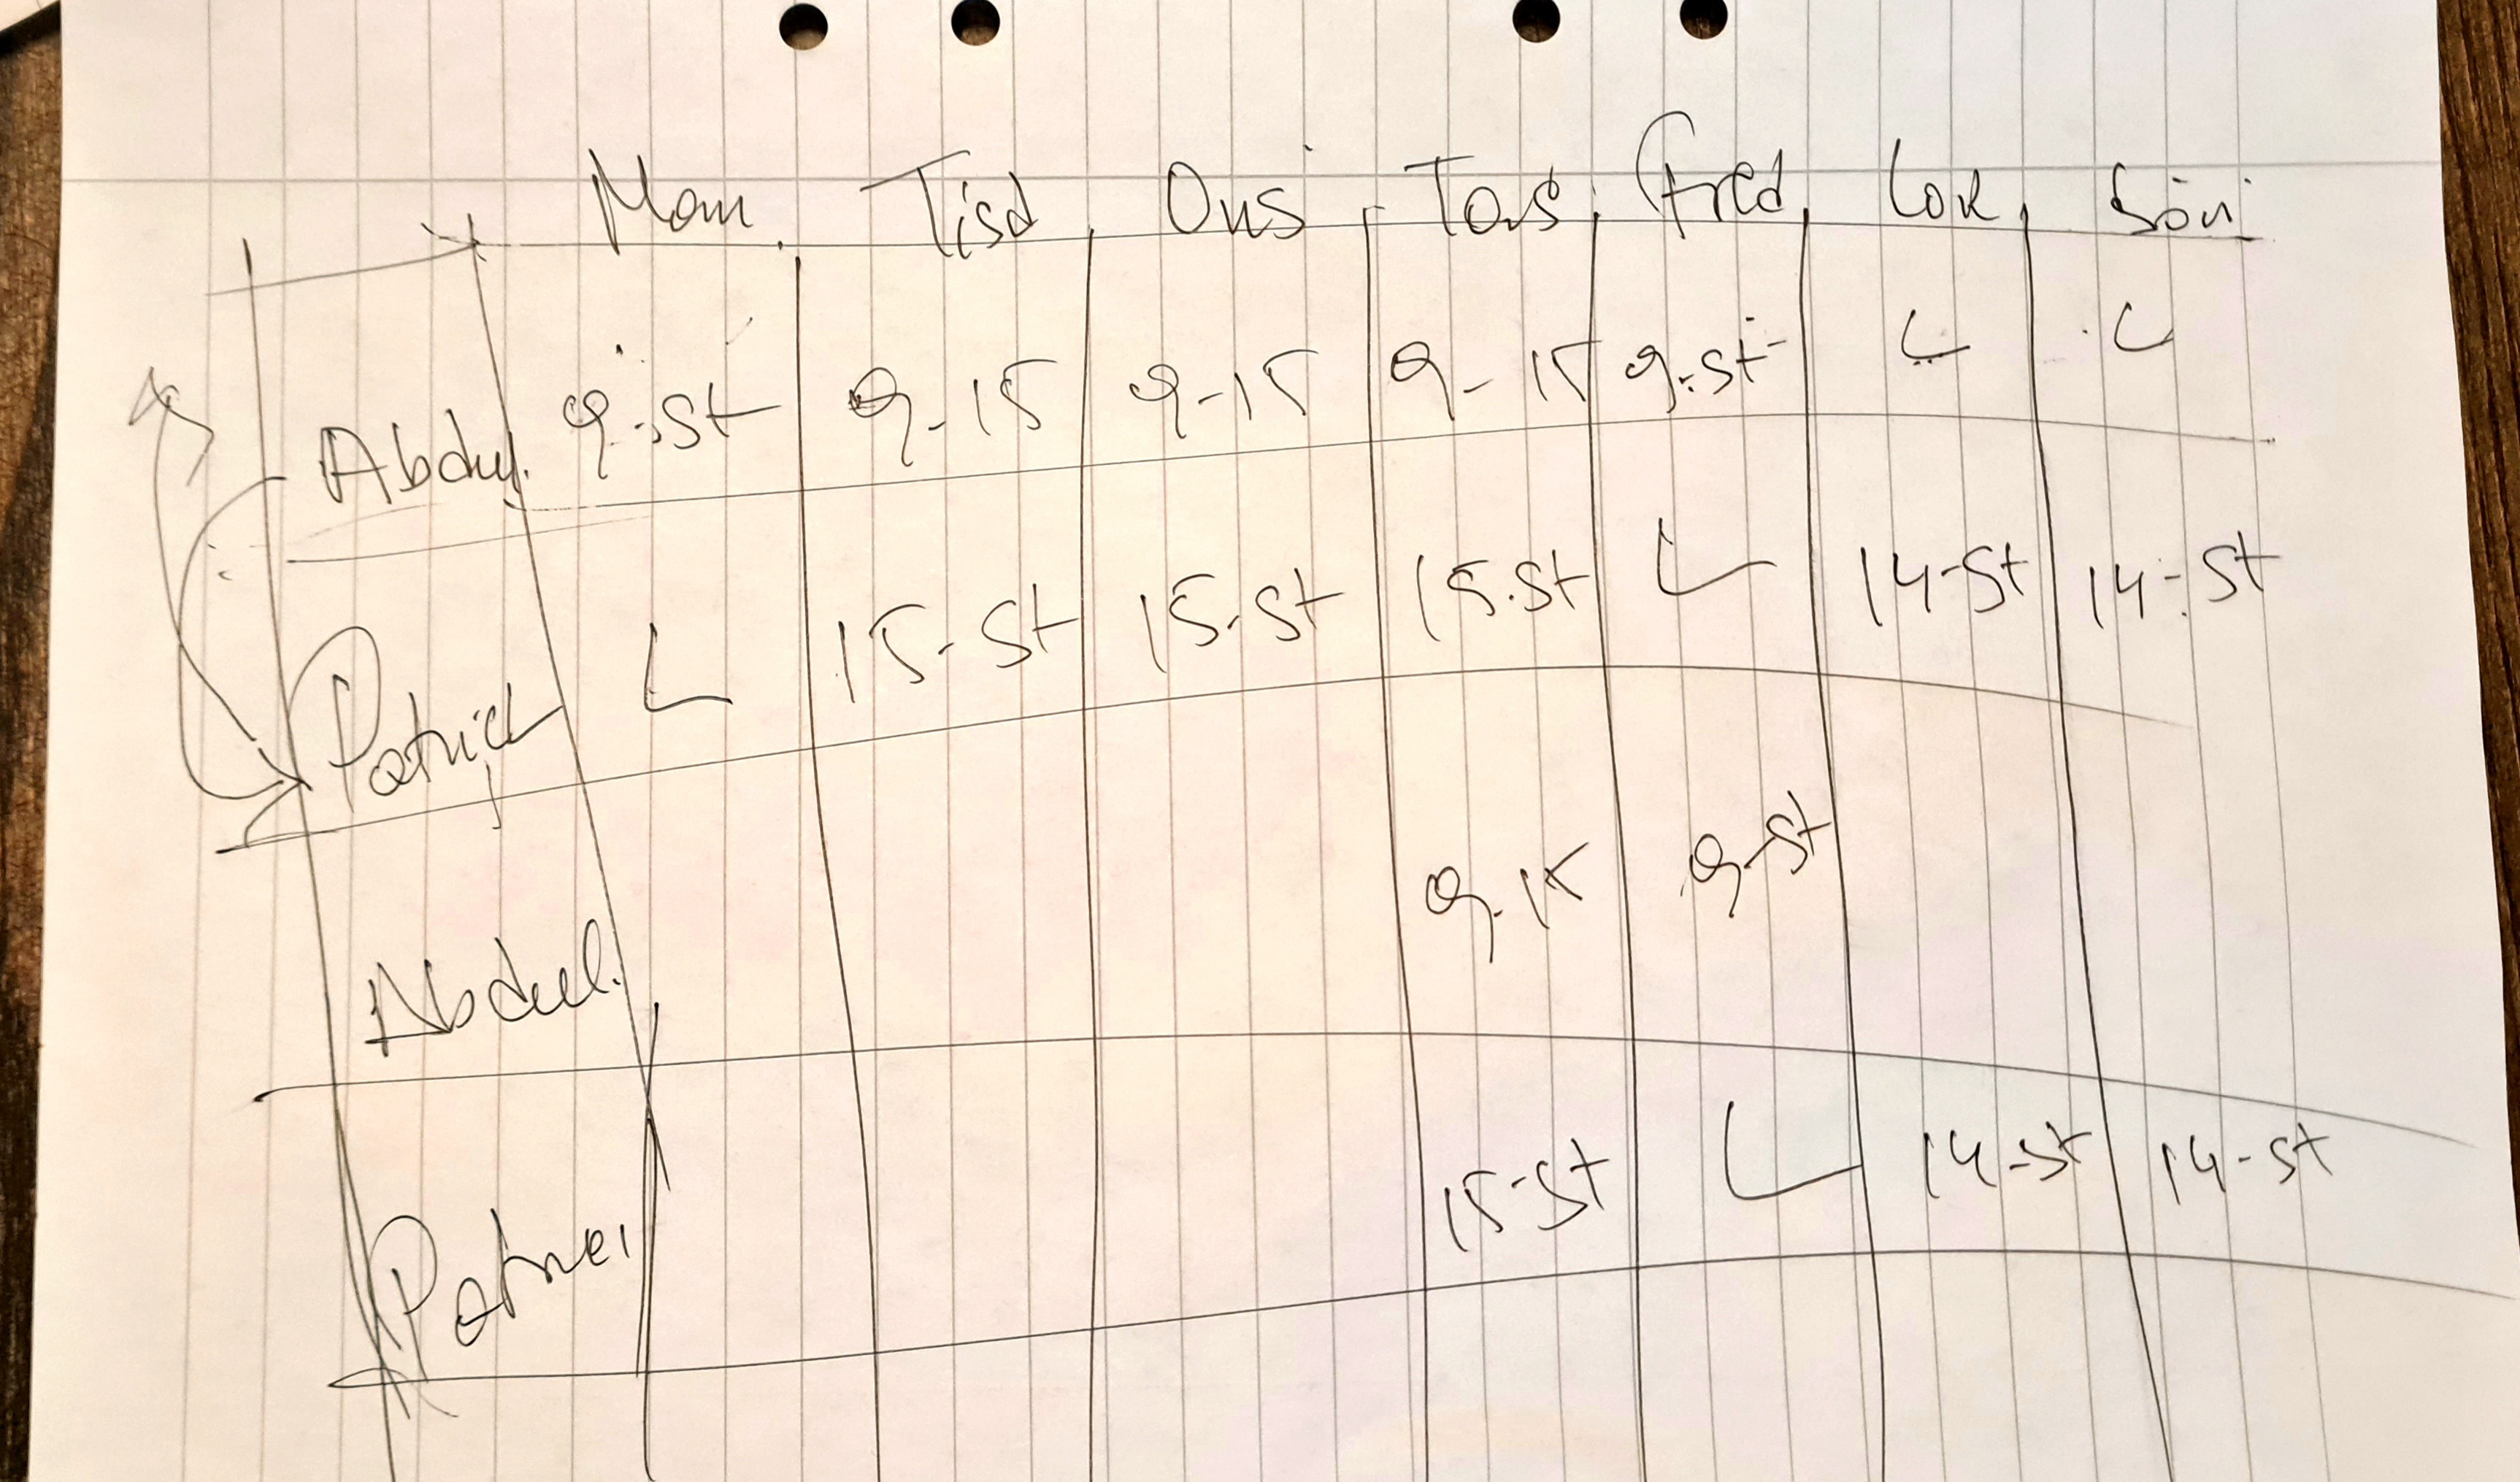 Mom Tisd Ons Tors fred Lör Sön
Abdul. 9-st 9-15 9-15 9-15 9-st L L
Patrick L 15-st 15-st 15-st L 14-st 14-st
Abdul. 9-15 9-st
15-st L 14-st 14-st